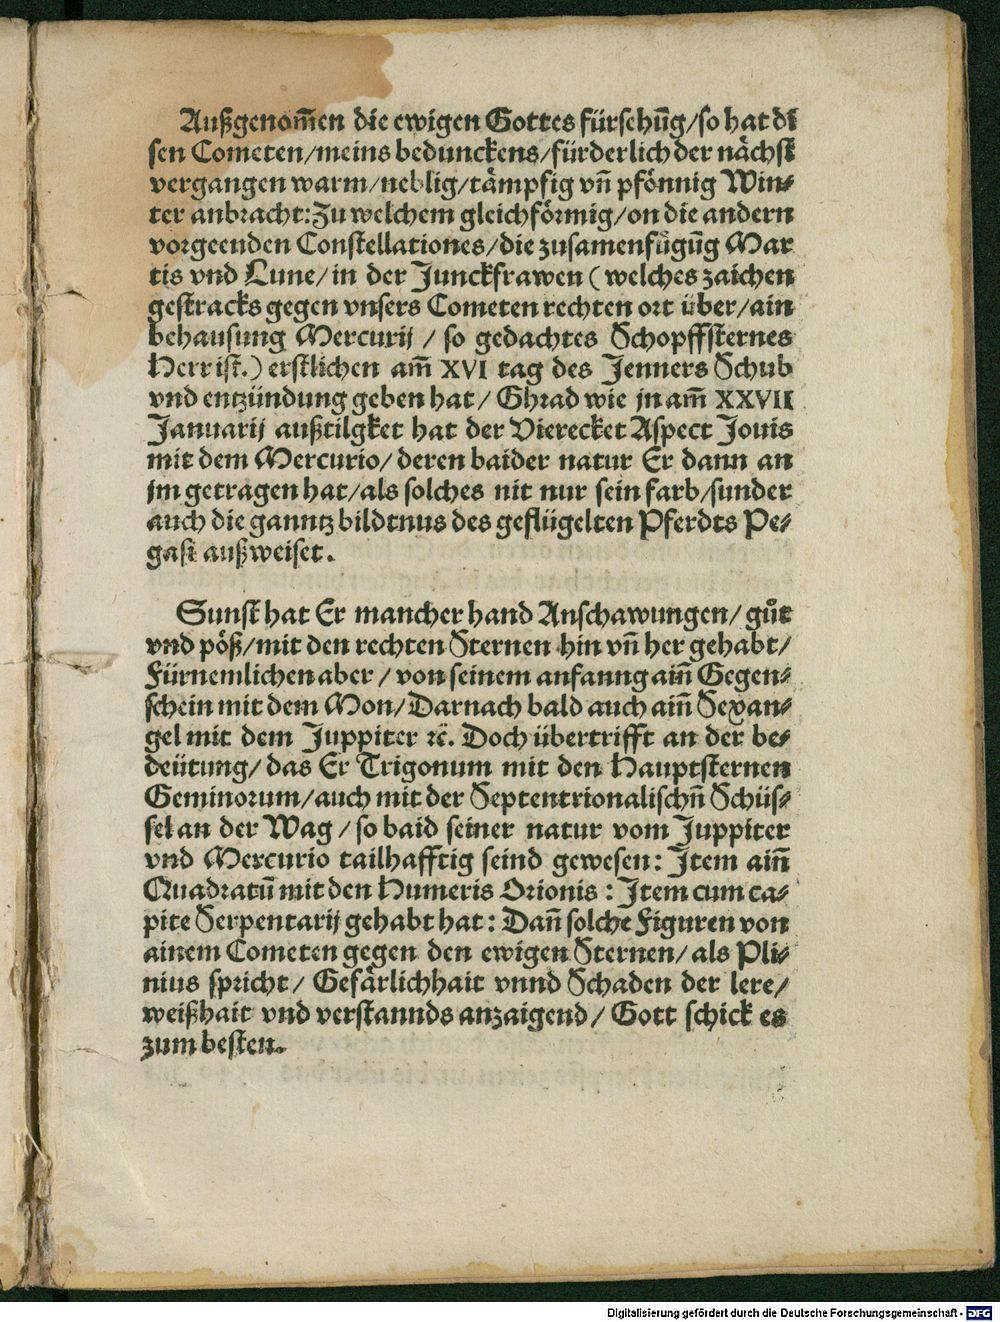 Außgenom̃en die ewigen Gottes fürsehũg/so hat di
sen Cometen/meins beduncke​ns/fürderlich der nächst
vergangen warm/neblig/tämpfig vñ pfönnig Win⸗
ter anbracht: Zu welchem gleichförmig/on die andern
vorgeenden Constellationes/die zusamenfůgũg Mar
tis vnd Lune/in der Junckfrawen (welches zaichen
gestracks gegen vnsers Cometen rechten ort über/ain
behausung Mercurij / so gedachtes Schopffsternes
Herr ist.) erstlichen am̃ XVI tag des Jenners Schub
vnd entzündung geben hat/ Ghrad wie jn am̃ XXVII
Januarij außtilgket hat der Vierecket Aspect Jouis
mit dem Mercurio/ deren baider natur Er dann an
jm getragen hat/als solches nit nur sein farb/sunder
auch die ganntz bildtnus des geflügelten Pferdts Pe⸗
gasi außweiset.
Sunst hat Er mancher hand Anschawungen/ gůt
vnd pöß/mit den rechten Sternen hin vñ her gehabt/
Fürnemlichen aber / von seinem anfanng aiñ Gegen⸗
schein mit dem Mon/ Darnach bald auch aiñ Sexan⸗
gel mit dem Juppiter ꝛc̃. Doch übertrifft an der be⸗
deütung/ das Er Trigonum mit den Hauptsternen
Geminorum/auch mit der Septentrionalischñ Schüs⸗
sel an der Wag / so baid seiner natur vom Juppiter
vnd Mercurio tailhafftig seind gewesen: Item aiñ
Quadratũ mit den Humeris Orionis : Item cum ca⸗
pite Serpentarij gehabt hat: Dañ solche Figuren von
ainem Cometen gegen den ewigen Sternen/ als Pli⸗
nius spricht/ Gefärlichhait vnnd Schaden der lere/
weißhait vnd verstannds anzaigend/ Gott schick es
zum besten.
Digitalisierung gefördert durch die Deutsche Forschungsgemeinschaft - DFG